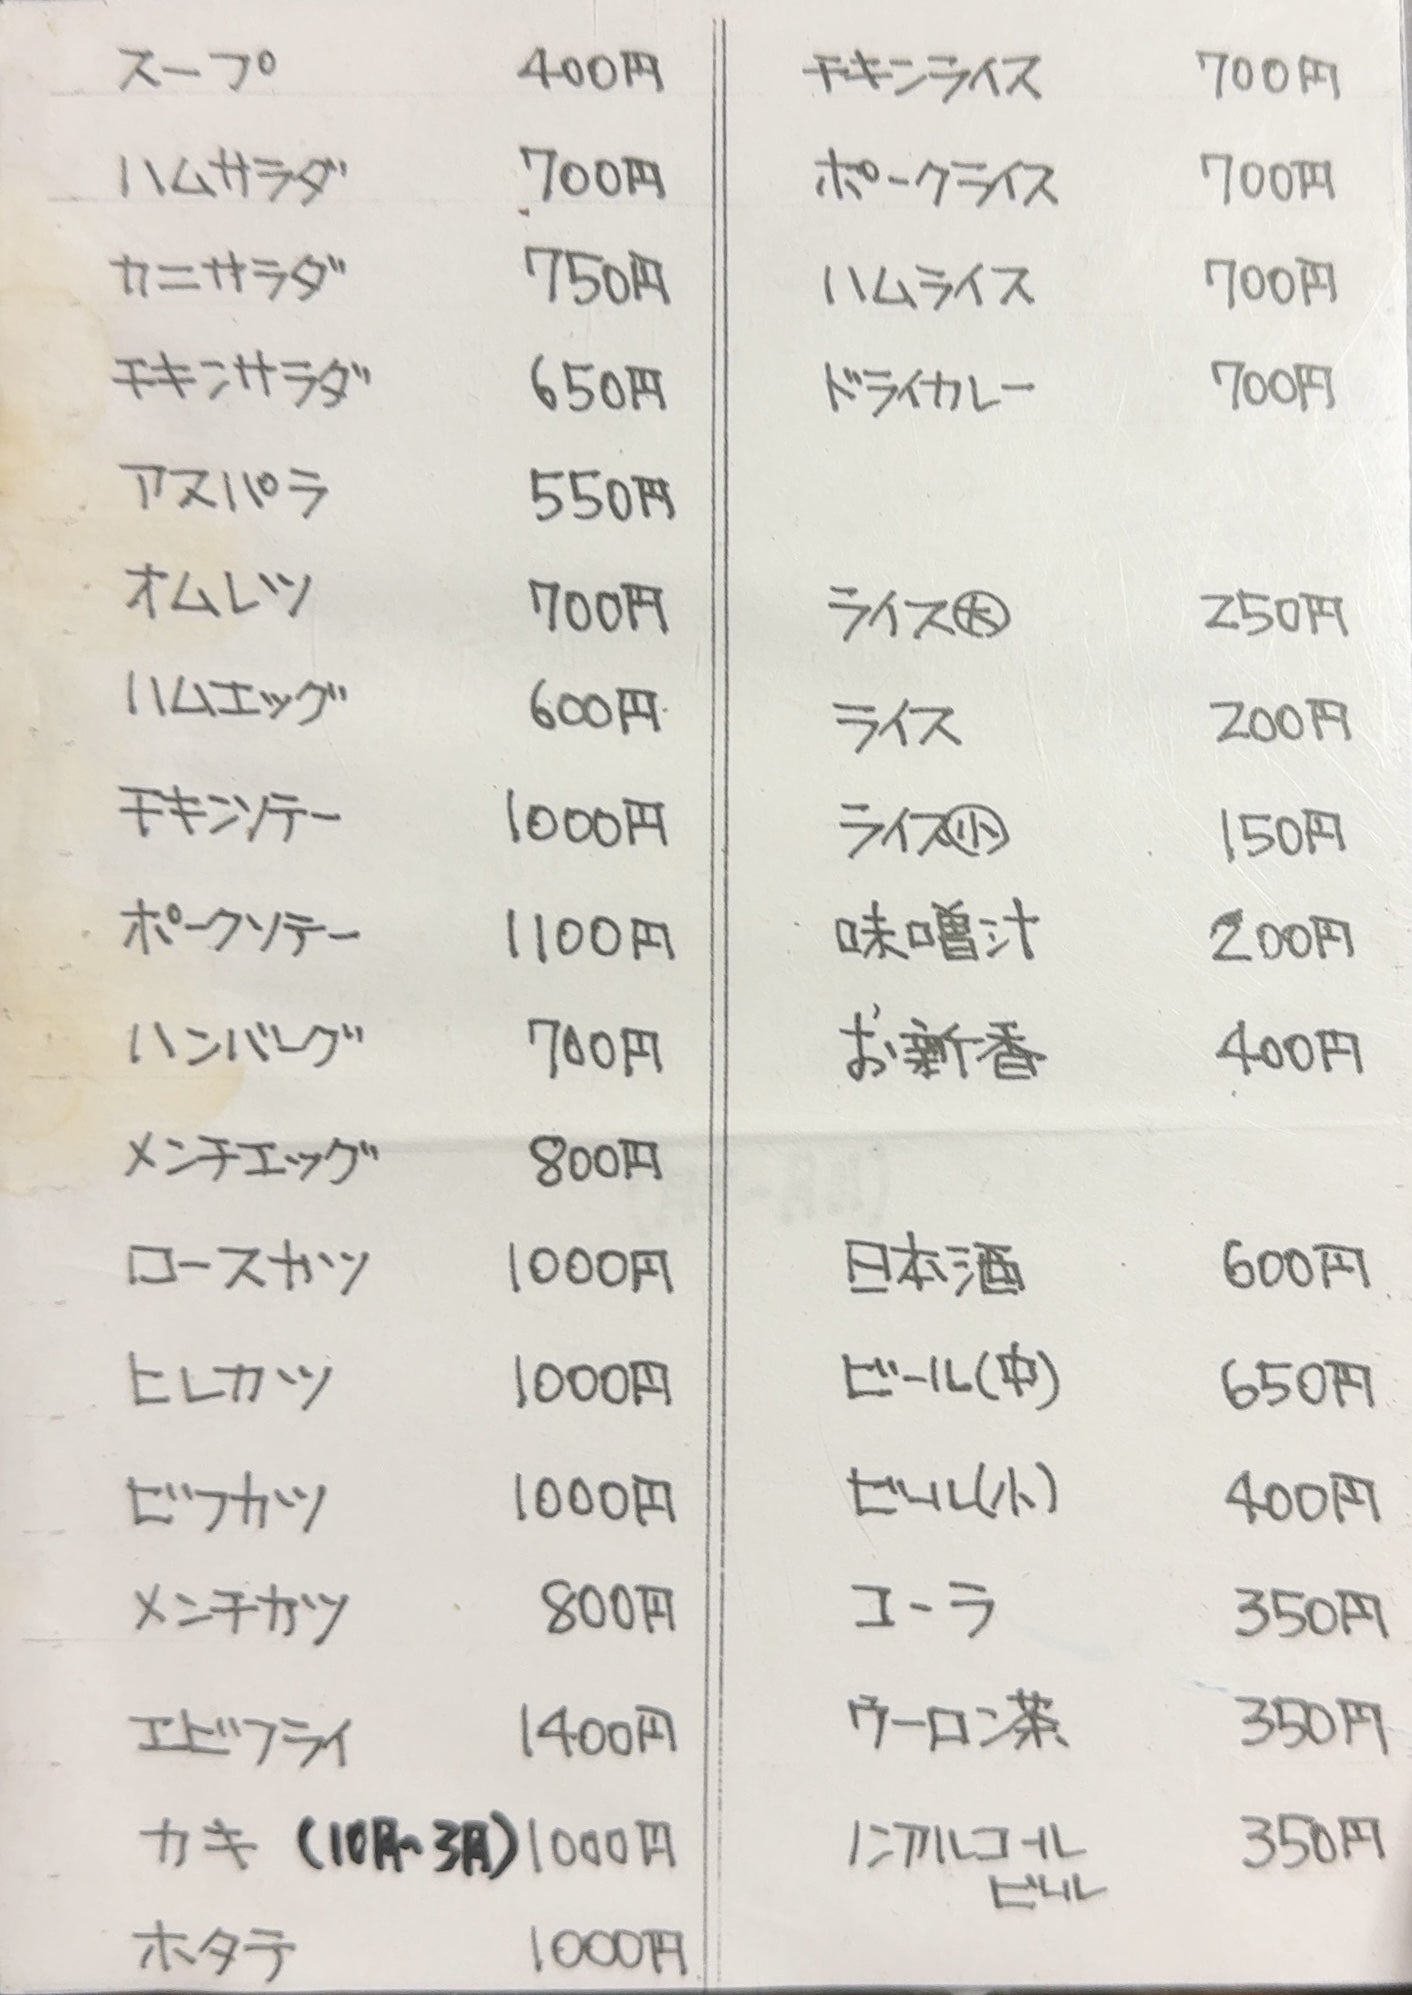 スープ 400円
ハムサラダ 700円
カニサラダ 750円
チキンサラダ 650円
アスパラ 550円
オムレツ 700円
ハムエッグ 600円
チキンソテー 1000円
ポークソテー 1100円
ハンバーグ 700円
メンチエッグ 800円
ロースカツ 1000円
ヒレカツ 1000円
ビフカツ 1000円
メンチカツ 800円
エビフライ 1400円
カキ (10月~3月) 1000円
ホタテ 1000円
チキンライス 700円
ポークライス 700円
ハムライス 700円
ドライカレー 700円
ライス㊅ 250円
ライス 200円
ライス㊙ 150円
味噌汁 200円
お新香 400円
日本酒 600円
ビール(中) 650円
ビール(小) 400円
コーラ 350円
ウーロン茶 350円
ノンアルコール 350円
ビール